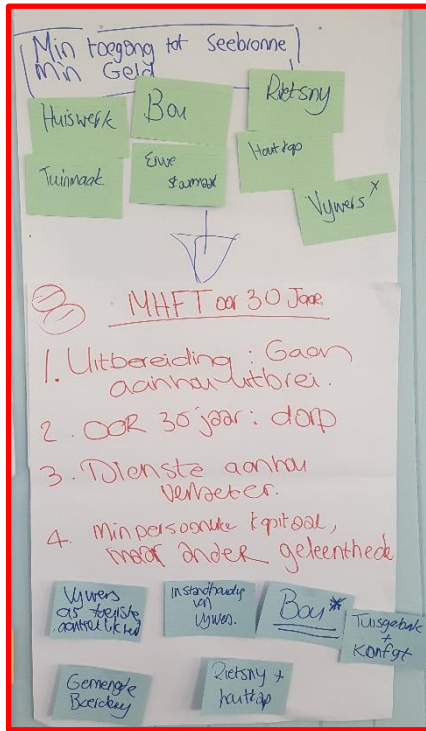 Min toegang tot Seebronne
Min Geld
Huiswerk
Bou
Rietsny
Tuinmaak
Erwe
skoonmaak
Hout kap
Vywers x
MHFT oor 30 Jaar
1. Uitbereiding : Gaan
aanhou uitbrei.
2. OOR 30 jaar : dorp
3. Dienste aanhou
verbeter.
4. Min persoonlike kapitaal,
maar ander geleenthede
Vywers
as toeriste
aantreklikheid
Instandhouding
van
vywers.
Bou *
Tuisgebak
+
Konfyt
Gemengde
Boerdery
Rietsny +
houtkap